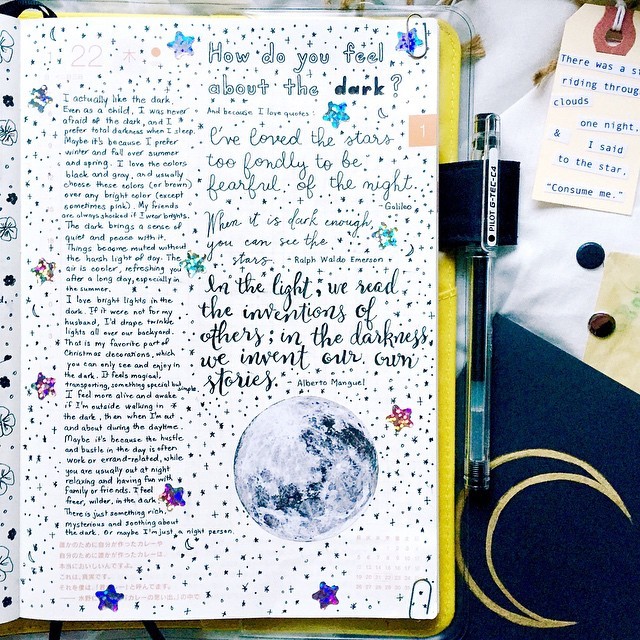 22 木
How do you feel
about the dark?
I actually like the dark.
Even as a child, I was never
afraid of the dark, and I
prefer total darkness when I sleep.
Maybe it's because I prefer
winter and fall over summer
and spring. I love the colors
black and gray, and usually
choose these colors (or brown)
over any bright color (except
sometimes pink). My friends
are always shocked if I wear brights.
The dark brings a sense of
quiet and peace with it.
Things become muted without
the harsh light of day. The
air is cooler, refreshing you
after a long day, especially in
the summer.
I love bright lights in the
dark. If it were not for my
husband, I'd drape twinkle
lights all over our backyard.
That is my favorite part of
Christmas decorations, which
you can only see and enjoy in
the dark. It feels magical,
transporting, something special but simple.
I feel more alive and awake
if I'm outside walking in
the dark, then when I'm out
and about during the daytime.
Maybe it's because the hustle
and bustle in the day is often
work or errand-related, while
you are usually out at night
relaxing and having fun with
family or friends. I feel
freer, wilder, in the dark.
There is just something rich,
mysterious and soothing about
the dark. Or maybe I'm just a night person.
And because I love quotes:
I've loved the stars
too fondly to be
fearful of the night.
- Galileo
When it is dark enough,
you can see the
stars. - Ralph Waldo Emerson
In the light, we read
the inventions of
others; in the darkness,
we invent our own
stories. - Alberto Manguel
誰かのために自分が作ったカレーや
自分のために誰かが作ったカレーは、
本当においしいんですよ。
これは、真実です。
1
PILOT G-TEC-C4
There was a st
riding throug
clouds
one night,
& I said
to the star,
"Consume me."